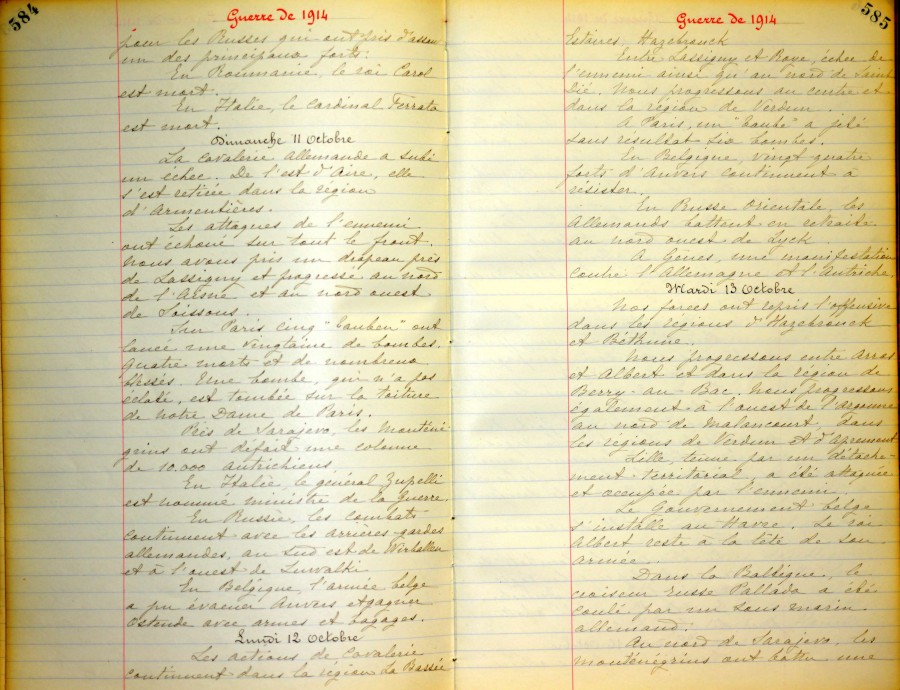 584
Guerre de 1914
pour les Russes qui ont pris d'assaut
un des principaux forts.
En Roumanie, le roi Carol
est mort.
En Italie, le cardinal Ferrata
est mort.
Dimanche 11 Octobre
La cavalerie allemande a subi
un echec. De l'est d'Aire, elle
s'est retirée dans la région
d'Armentières.
Les attaques de l'ennemi
ont échoué sur tout le front.
Nous avons pris un drapeau près
de Lassigny et progressé au nord
de l'Aisne et au nord ouest
de Soissons.
Sur Paris cinq "Tauben" ont
lancé une vingtaine de bombes.
Quatre morts et de nombreux
blessés. Une bombe, qui n'a pas
éclaté, est tombée sur la toiture
de notre Dame de Paris.
Près de Sarajevo, les monténé
grins ont défait une colonne
de 10.000 autrichiens
En Italie, le général Zupelli
est nommé ministre de la Guerre.
En Russie, les combats
continuent avec les arrières gardes
allemandes, au sud est de Wirballen
et à l'ouest de Suwalki
En Belgique, l'armée belge
a pu évacuer Anvers et gagner
Ostende avec armes et bagages.
Lundi 12 Octobre
Les actions de cavalerie
continuent dans la région La Bassée
585
Guerre de 1914
Estaires, Hazebrouck
Entre Lassigny et Roye, échec de
l'ennemi ainsi qu'au nord de Saint
Dié. Nous progressons au centre et
dans la région de Verdun.
A Paris, un "Taube" a jeté
sans résultat six bombes.
En Belgique, vingt quatre
forts d'Anvers continuent à
résister.
En Prusse Orientale, les
Allemands battent en retraite
au nord ouest de Lyck
A Gênes, une manifestation
contre l'Allemagne et l'Autriche
Mardi 13 Octobre
Nos forces ont repris l'offensive
dans les régions d'Hazebrouck
et Béthune.
Nous progressons entre Arras
et Albert et dans la région de
Berry-au-Bac. Nous progressons
également à l'ouest de l'Argonne
au nord de Malancourt, dans
les régions de Verdun et d'Apremont
Lille, tenue par un détache-
ment territorial a été attaquée
et occupée par l'ennemi
Le Gouvernement belge
s'installe au Havre. Le roi
Albert reste à la tête de son
armée.
Dans la Baltique, le
croiseur russe Pallada a été
coulé par un sous marin
allemand.
Au nord de Sarajevo, les
monténégrins ont battu une